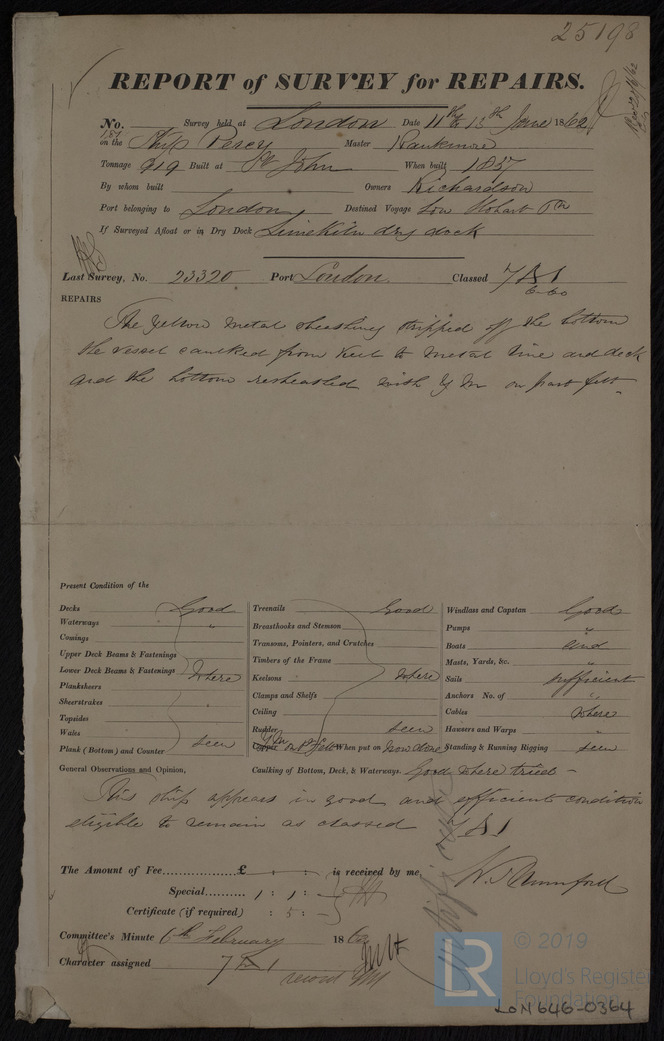 25198
REPORT of SURVEY for REPAIRS.
No. Survey held at London Date 11th & 13th June 1860
on the Ship Percy Master
Tonnage 919 Built at St John When built 1857
By whom built Owners Richardson
Port belonging to London Destined Voyage Hobart
If Surveyed Afloat or in Dry Dock Limekiln dry dock
Last Survey, No. 23320 Port London. Classed 7 A 1
6-60
REPAIRS
The yellow metal sheathing stripped off the bottom
the vessel caulked from keel to metal line and deck
and the bottom resheathed with Y M on part felt
Present Condition of the
Decks Good Treenails Good Windlass and Capstan Good
Waterways " Breasthooks and Stemson Pumps "
Comings Transoms, Pointers, and Crutches Boats and
Upper Deck Beams & Fastenings Timbers of the Frame Masts, Yards, &c. "
Lower Deck Beams & Fastenings where Keelsons where Sails sufficient
Planksheers Clamps and Shelfs Anchors No. of "
Sheerstrakes Ceiling Cables where
Topsides Rudder seen Hawsers and Warps "
Wales Copper Y M on P Felt When put on now done Standing & Running Rigging seen
Plank (Bottom) and Counter seen
General Observations and Opinion, Caulking of Bottom, Deck, & Waterways. Good where tried -
This ship appears in good and efficient condition
eligible to remain as classed 7 A 1
The Amount of Fee £ : : is received by me,
Special 1 : 1 :
Certificate (if required) : 5 :
Committee's Minute 6th February 186
Character assigned 7 A 1
© 2019
LR
Lloyd's Register
Foundation
LON646-0364